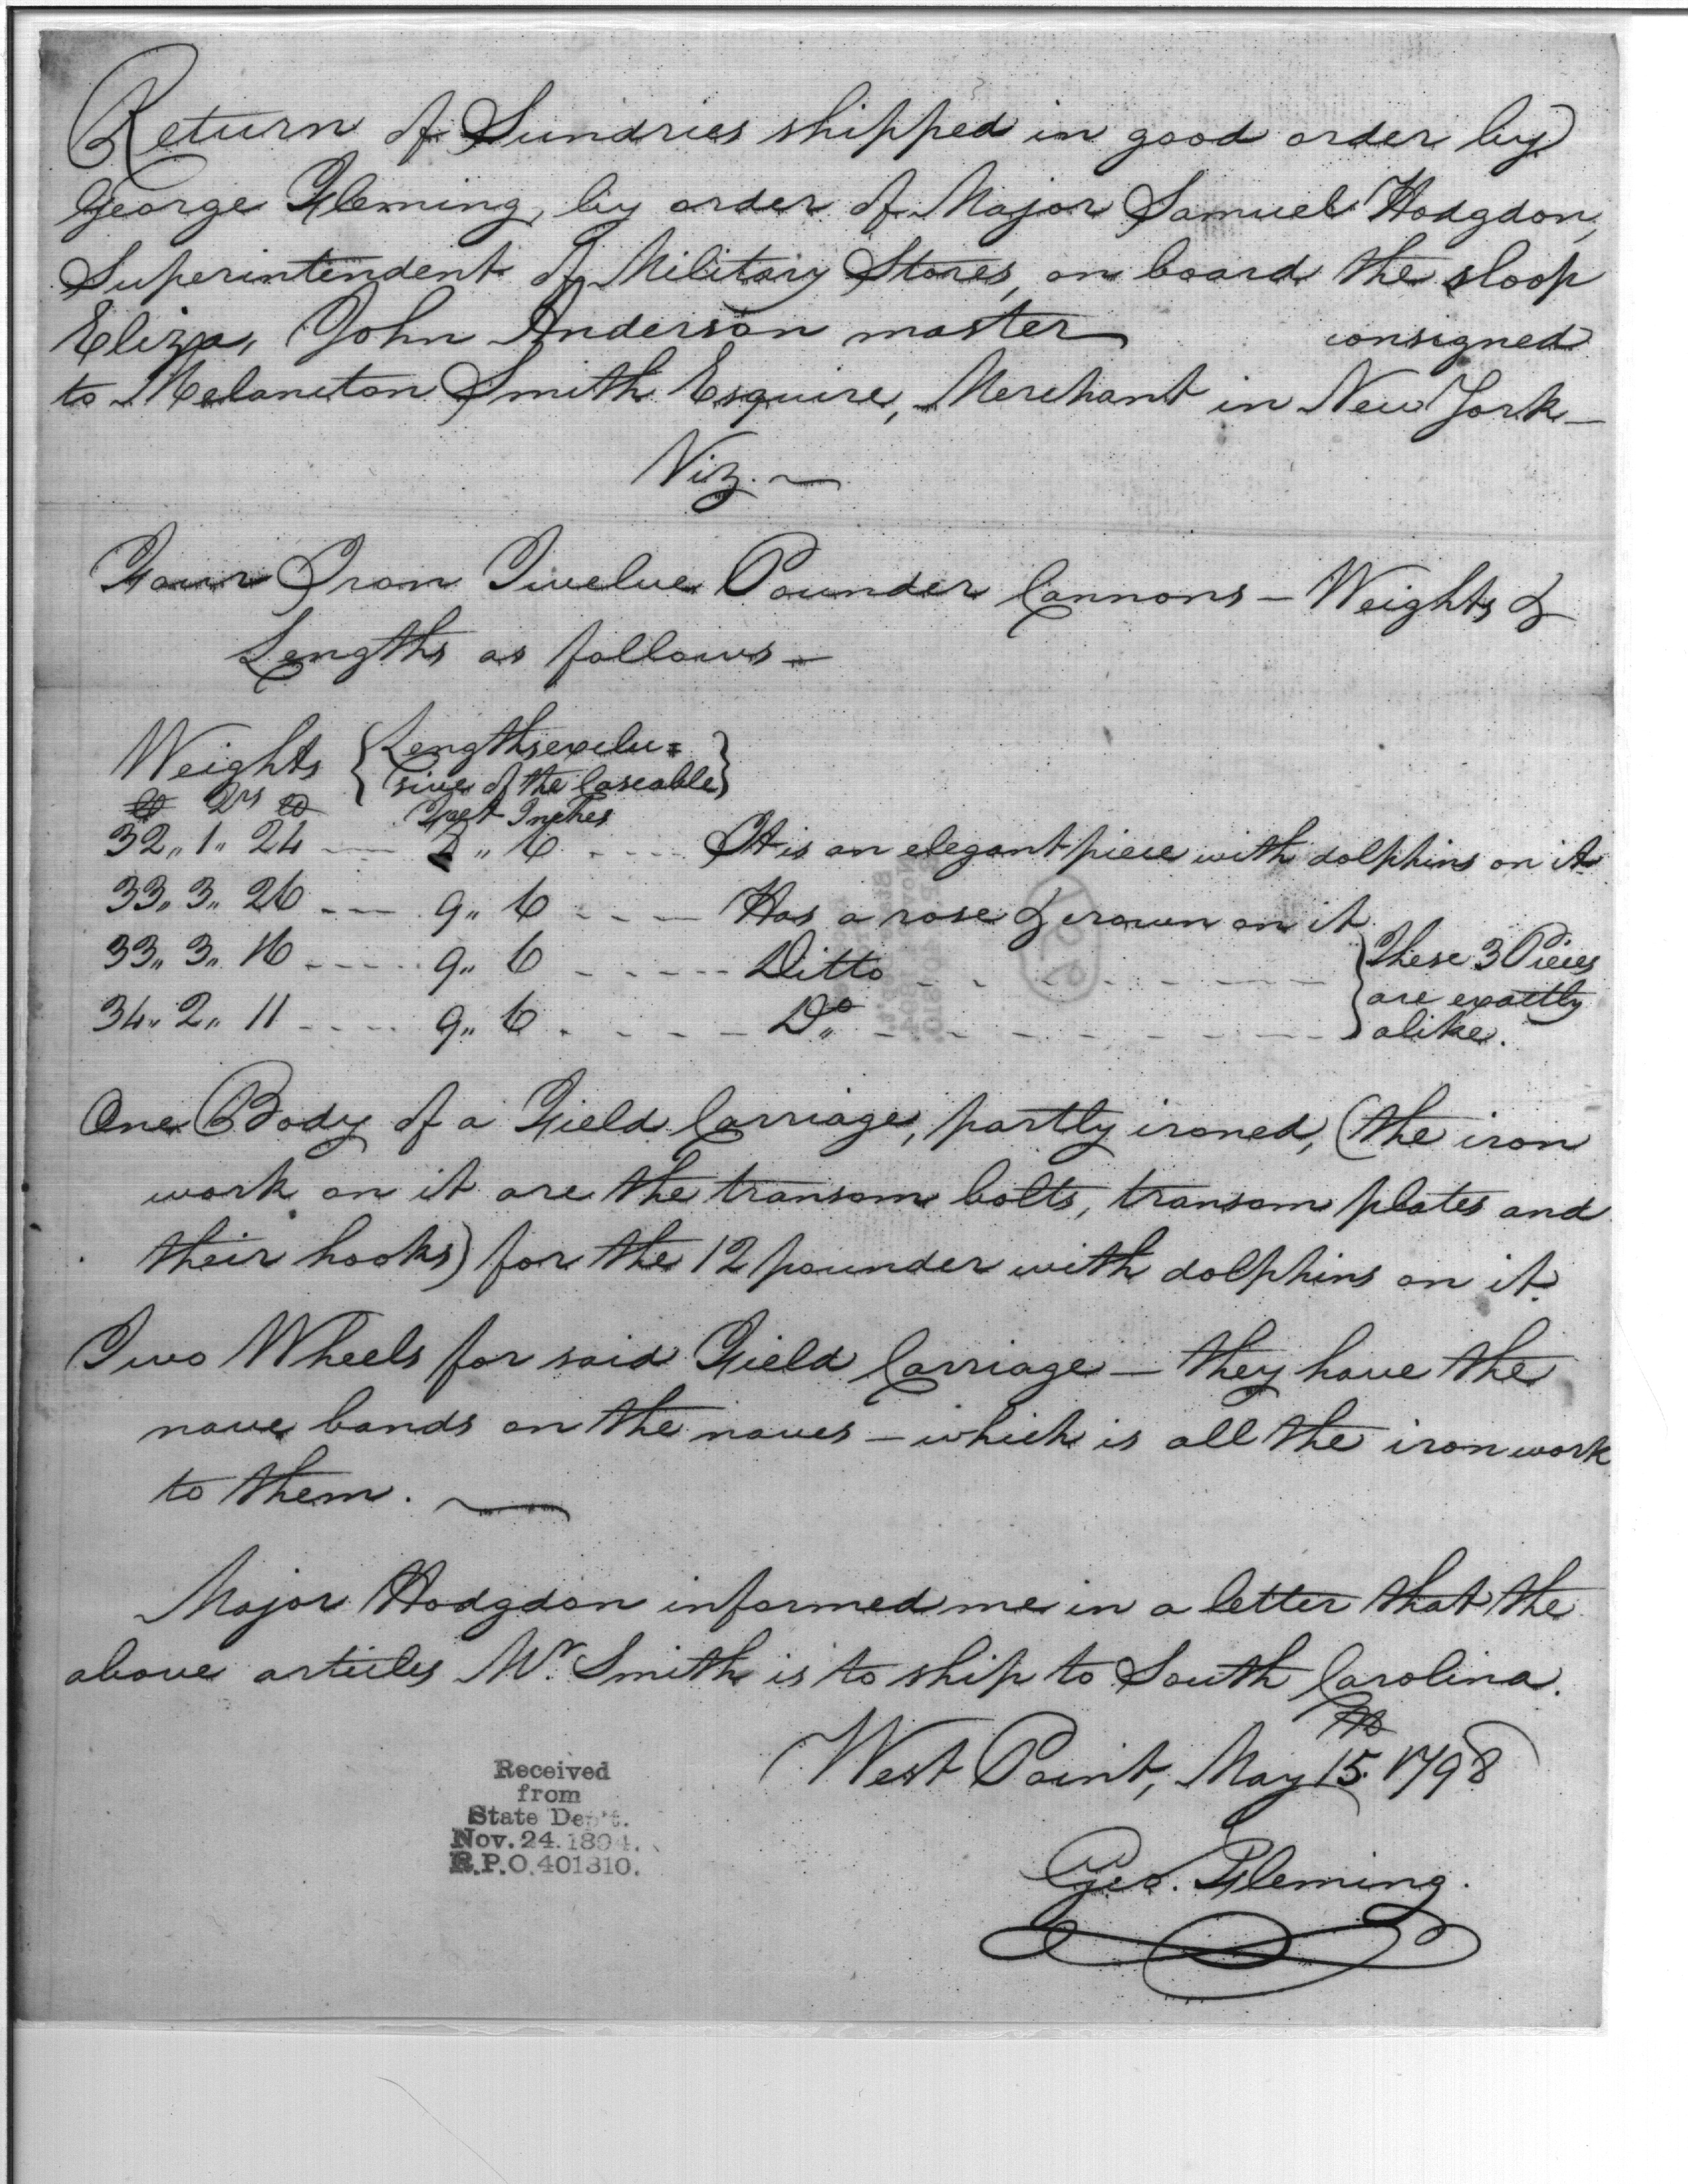 Return of Sundries shipped in good order by
George Fleming, by order of Major Samuel Hodgdon,
Superintendent of Military Stores, on board the sloop
Eliza, John Anderson master consigned
to Melancton Smith Esquire, Merchant in New York—
Viz.
Four Iron Twelve Pounder Cannons – Weights &
Lengths as follows –
Weights { Lengths exclu=
sive of the Cascable }
Qrs Feet Inches
32,, 1,, 24 ,, 6 It is an elegant piece with dolphins on it
33,, 3,, 26 9,, 6 Has a rose & crown on it
33,, 3,, 16 9,, 6 Ditto
34,, 2,, 11 9,, 6 Do
} These 3 Pieces
are exactly
alike.
One Body of a Field Carriage, partly ironed, (the iron
work on it are the transom bolts, transom plates and
their hooks) for the 12 pounder with dolphins on it.
Two Wheels for said Field Carriage – they have the
nave bands on the naves – which is all the iron work
to them.
Major Hodgdon informed me in a letter that the
above articles Mr. Smith is to ship to South Carolina.
West Point, May 15th 1798
Geo. Fleming.
Received
from
State Dep't.
Nov. 24. 1894.
R.P.O. 401310.